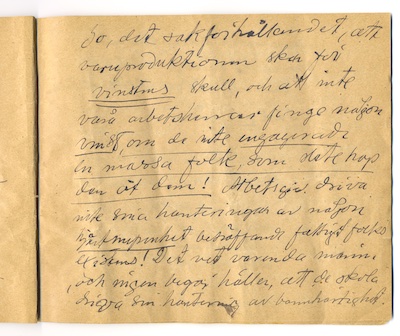 Jo, det sakförhållandet, att
varuproduktionen sker för
vinstens skull, och att inte
våra arbetsherrar finge någon
vinst, om de inte engagerade
en massa folk, som
den åt dem! Arbetsgiv. driva
inte sina hanteringar av någon
beträffande fattigt folks
existens! Det vet varenda männ.
och ingen begär häller, att de skola
driva sin hantering av barmhärtighet.